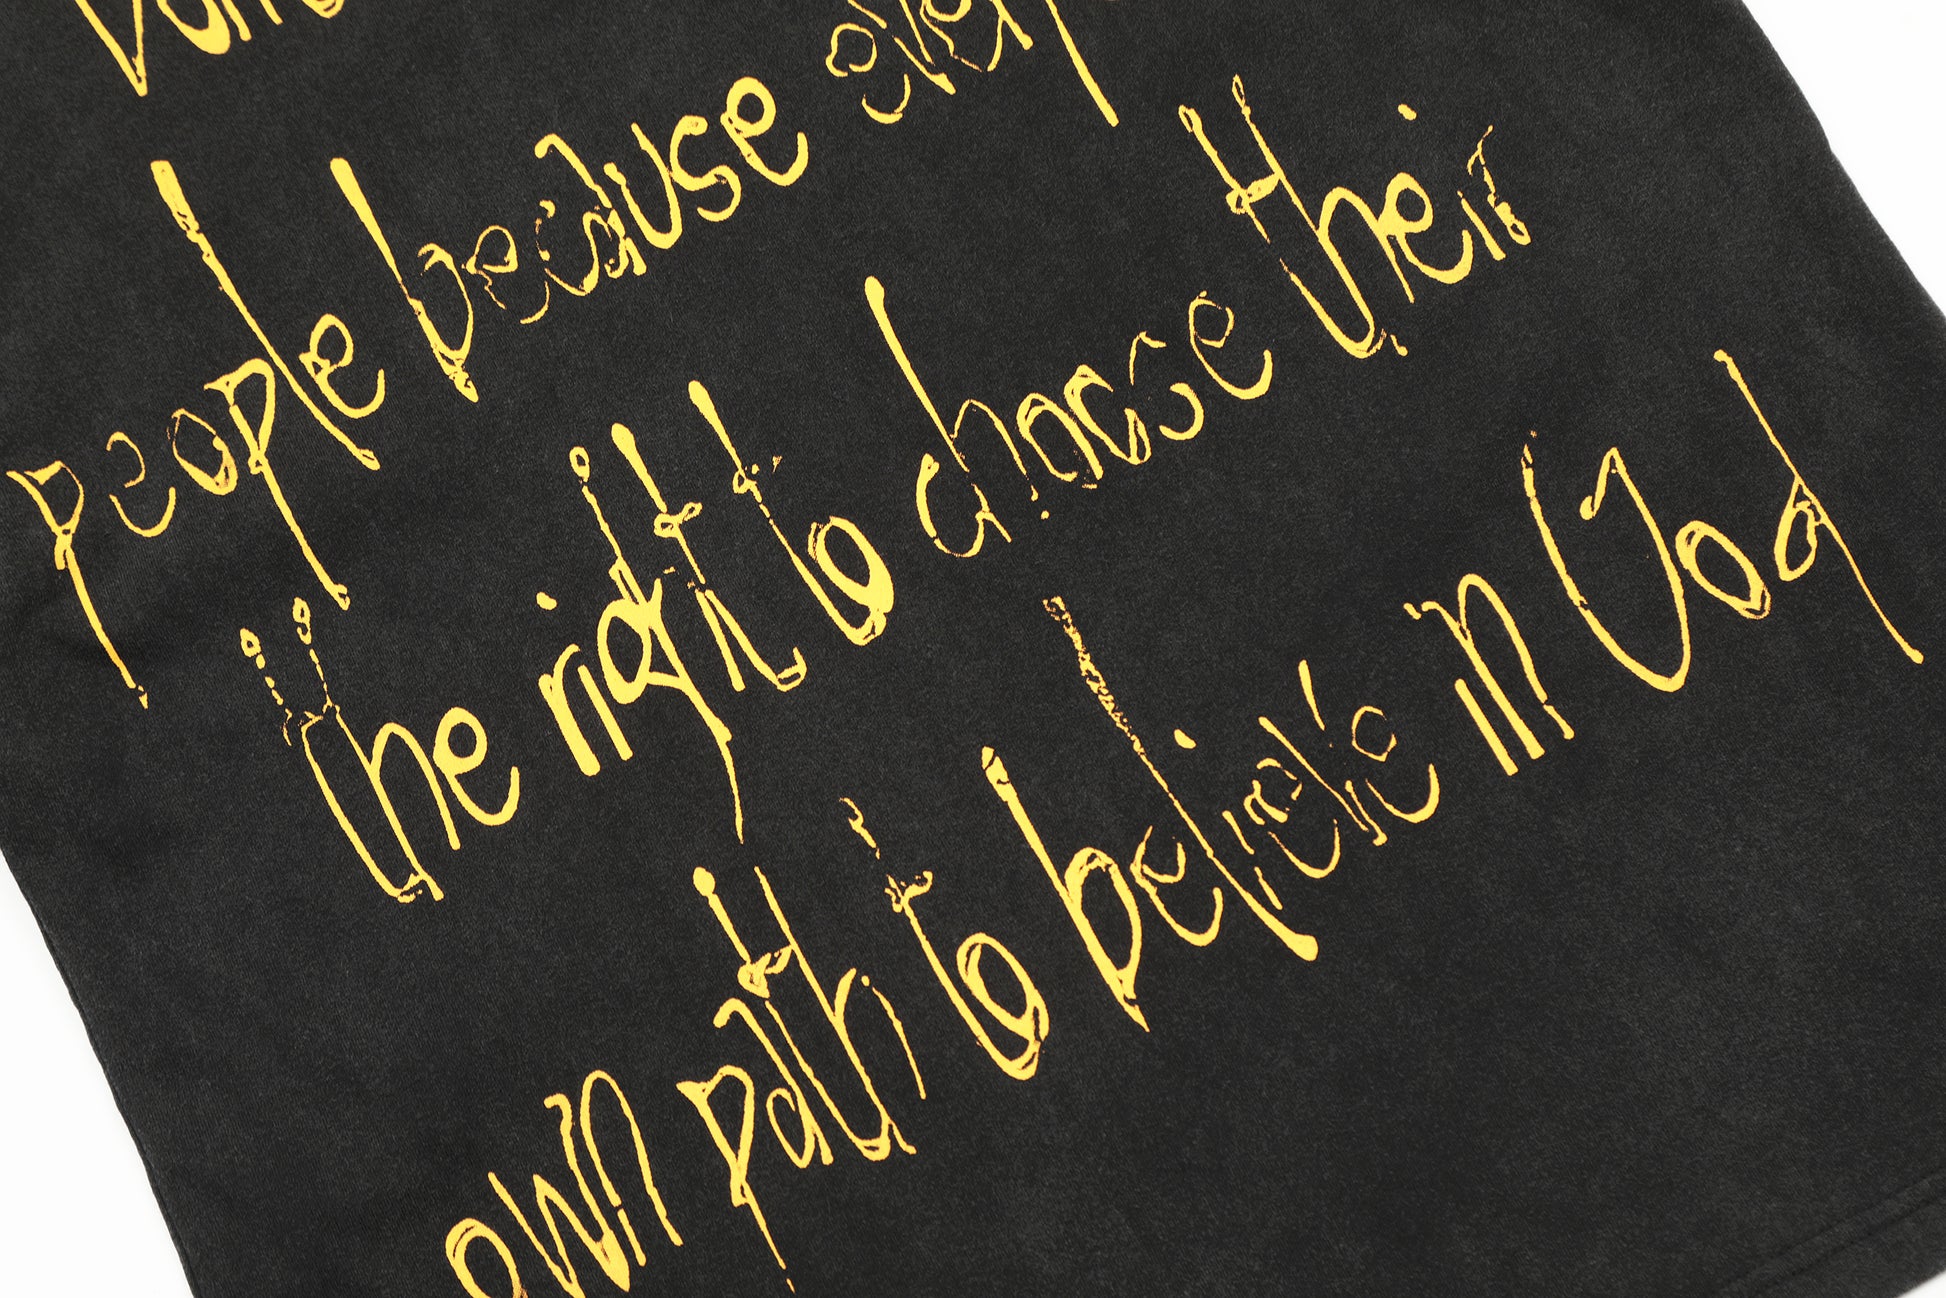 people because
the right to choose their
own path to believe in God